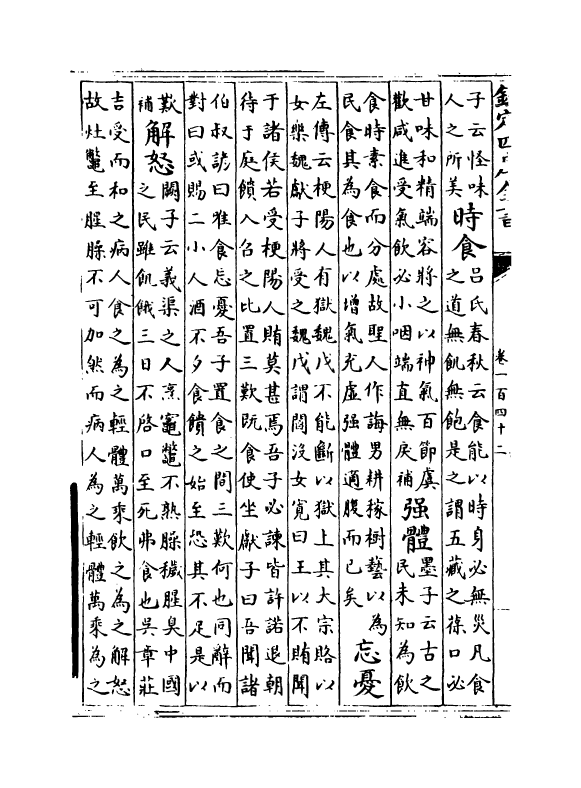 欽定四庫全書
卷一百四十二
子云怪味
人之所美
時食
呂氏春秋云食能以時身必無災凡食
之道無飢無飽是之謂五藏之葆口必
甘味和精端容將之以神氣百節虞
歡咸進受氣飲必小咽端直無戾補
强體
墨子云古之
民未知為飲
食時素食而分處故聖人作誨男耕稼樹藝以為
民食其為食也以增氣充虛强體適腹而已矣
忘憂
左傳云梗陽人有獄魏戊不能斷以獄上其大宗賂以
女樂魏獻子將受之魏戊謂閻没女寛曰王以不賄聞
于諸侯若受梗陽人賄莫甚焉吾子必諫皆許諾退朝
待于庭饋入召之比置三歎既食使坐獻子曰吾聞諸
伯叔諺曰惟食忘憂吾子置食之間三歎何也同辭而
對曰或賜二小人酒不夕食饋之始至恐其不足是以
歎
補
解怒
闕子云義渠之人烹竈鼈不熟臊穢腥臭中國
之民雖飢餓三日不啓口至死弗食也吳章莊
吉受而和之病人食之為之輕體萬乘飲之為之解怒
故灶鼈至腥臊不可加然而病人為之輕體萬乘為之